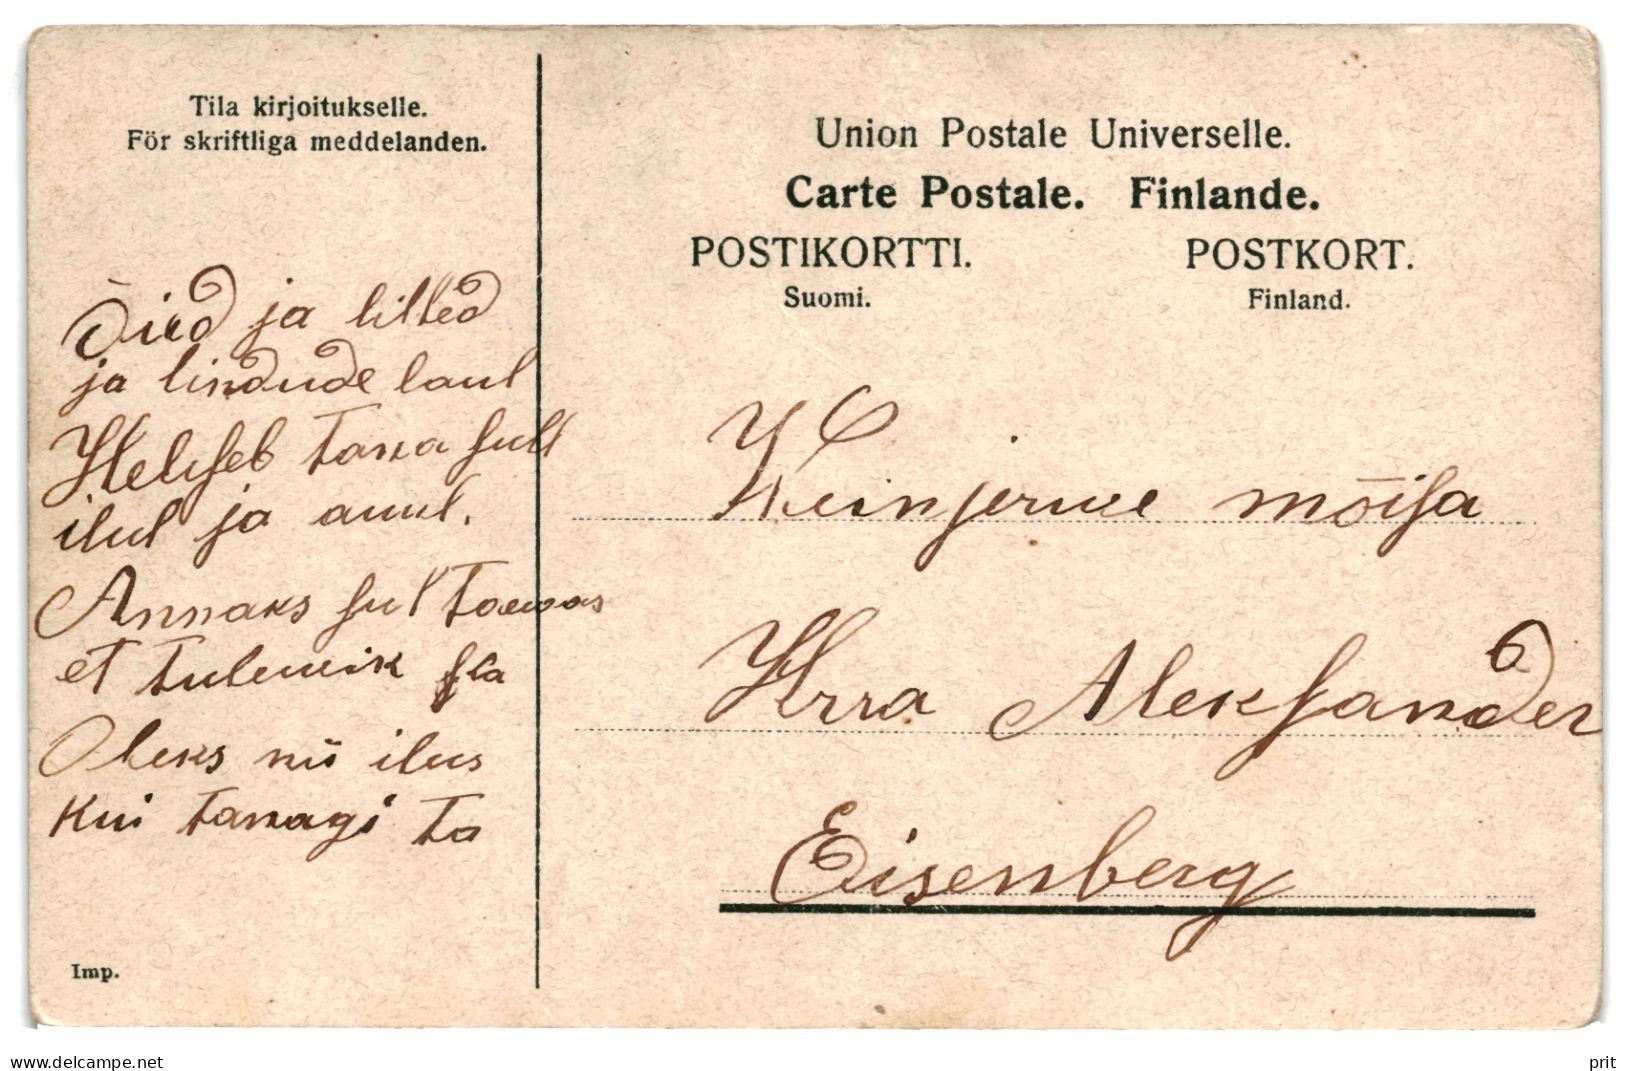 Tila kirjoitukselle.
För skriftliga meddelanden.
Union Postale Universelle.
Carte Postale. Finlande.
POSTIKORTTI. POSTKORT.
Suomi. Finland.
Õied ja lilled
ja lindude laul
Heliseb tana sull
ilul ja auul.
Annaks sul taewas
et tulewik ka
Oleks nii ilus
kui tanagi ta
Imp.
Weinjerwe mõisa
Hrra Aleksander
Eisenberg
delcampe.net
prit